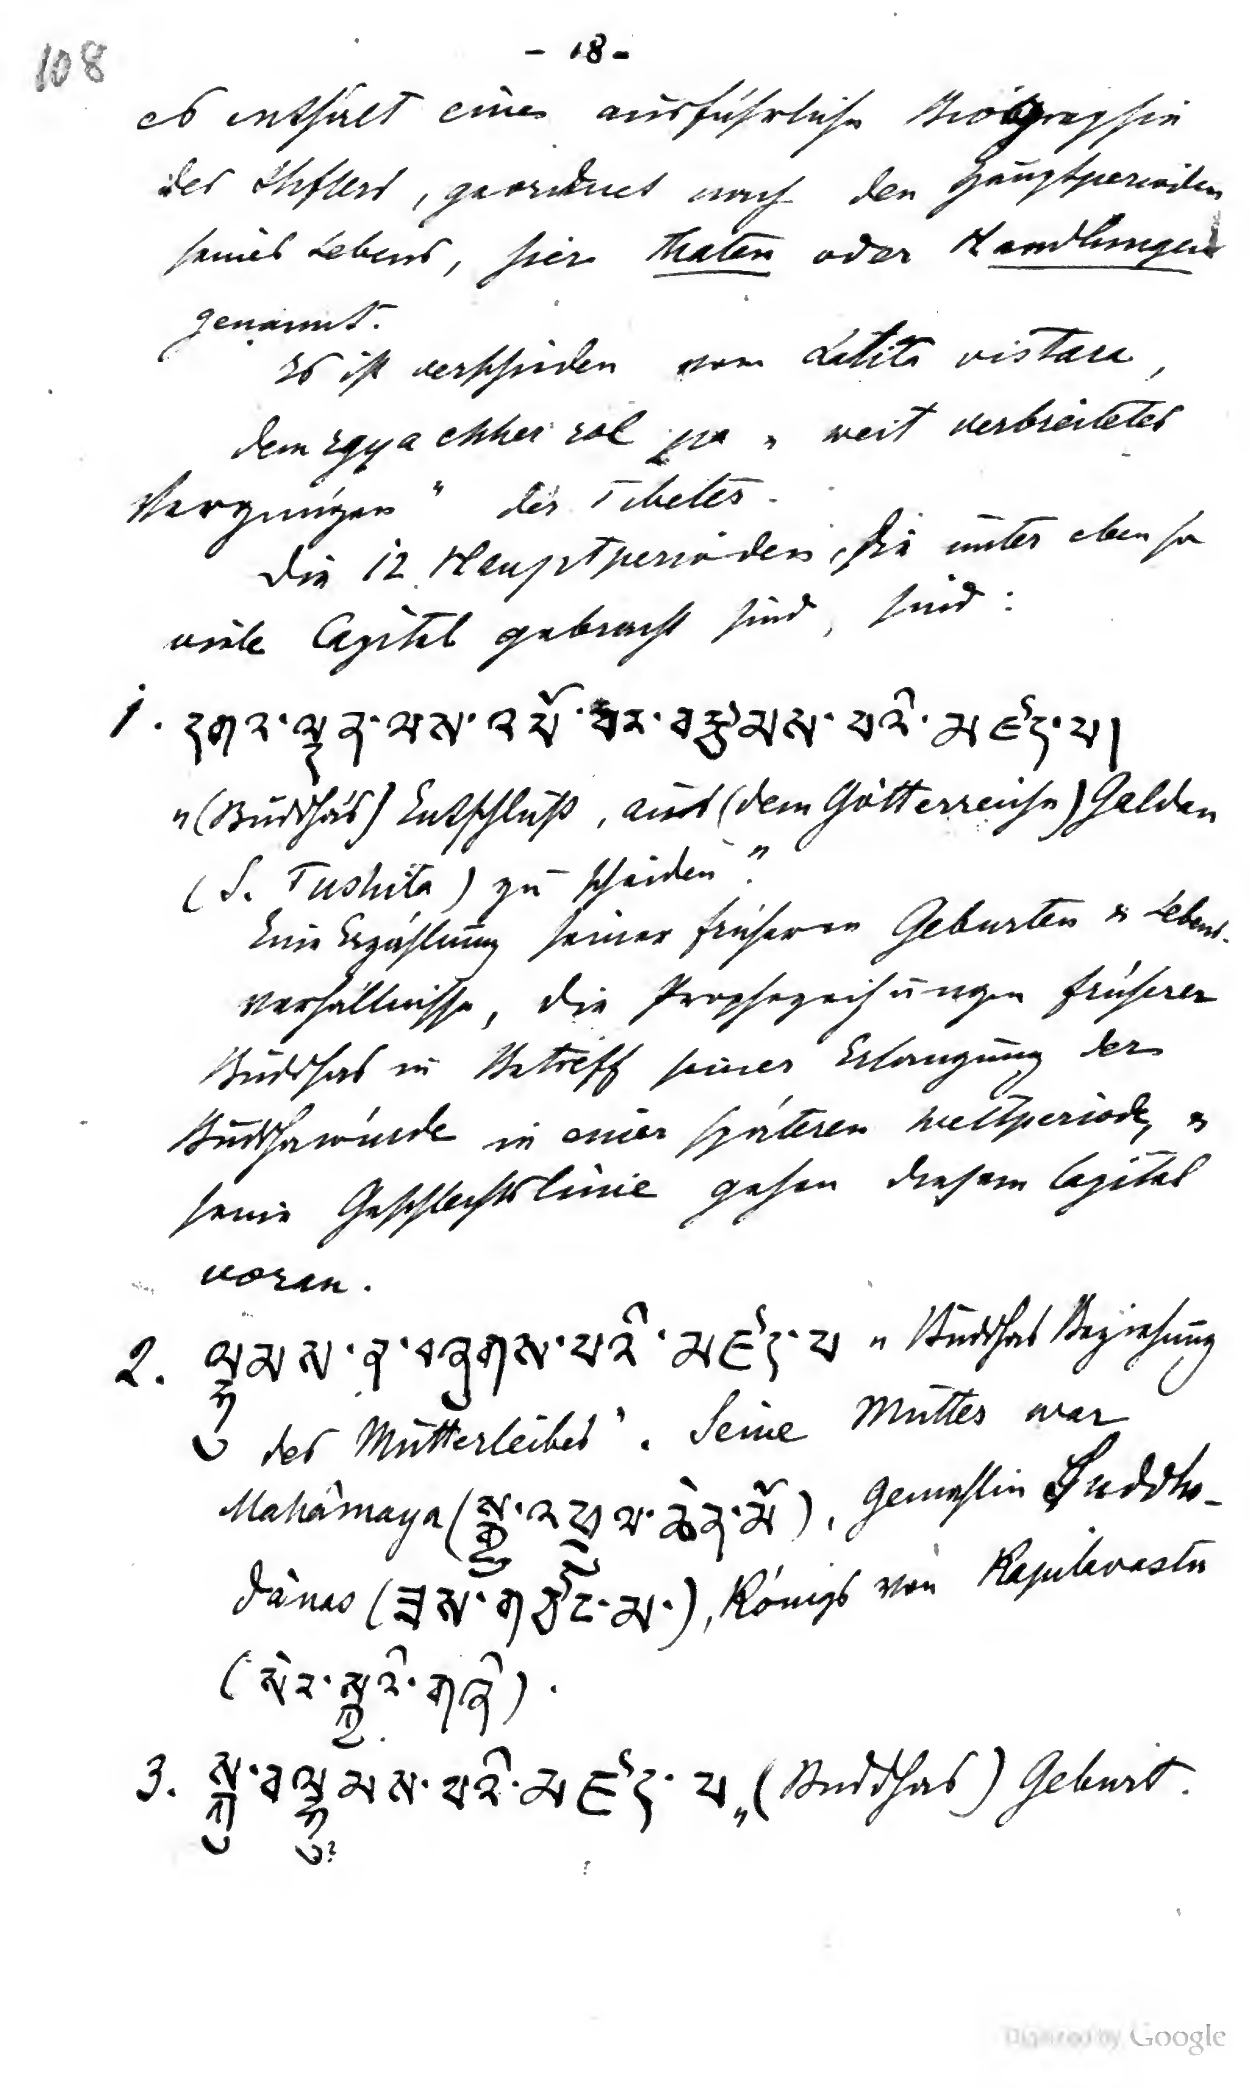 108
- 18 -
es enthält eine ausführliche Biographie
des Stifters, geordnet nach den Hauptperioden
seines Lebens, hier Thaten oder Handlungen
genannt.
Es ist verschieden vom Lalita vistara,
dem rgya chher rol pa „weit verbreitetes
Vergnügen“ der Tibeter.
Die 12 Hauptperioden, die unter eben so
viele Capitel gebracht sind, sind:
1. དགའ་ལྡན་ལས་འཕོ་བར་
„(Buddhas) Entschluß, aus (dem Götterreiche) Galdan
(S. Tushita) zu scheiden“.
Eine Erzählung seiner früheren Geburten & Lebens-
verhältnisse, die Prophezeihungen früherer
Buddhas in Betreff seiner Erlangung der
Buddhawürde in einer späteren Weltperiode, &
seine Geschlechtslinie gehen diesem Capitel
voran.
2. ལྷུམས་ན་བཞུགས་པའི་མཛོད་པ „Buddhas Beziehung
des Mutterleibes“. Seine Mutter war
Mahâmaya (སྒྱུ་འཕྲུལ་ཆེན་མོ), Gemahlin Suddho-
dânas (ཟས་གཙོང་མ་), Königs von Kapilavastu
(སེར་སྐྱའི་གཞི).
3. པའི་མཛོད་པ „(Buddhas) Geburt.
Digitized by Google